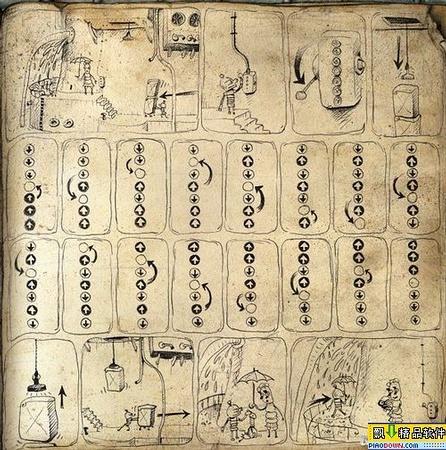 飘↓精品软件
PIAODOWN.COM